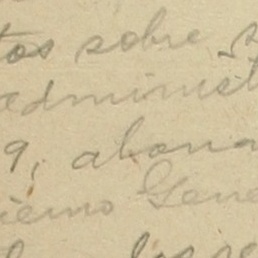 tos sobre s
administ
9, abona
ierno Gene